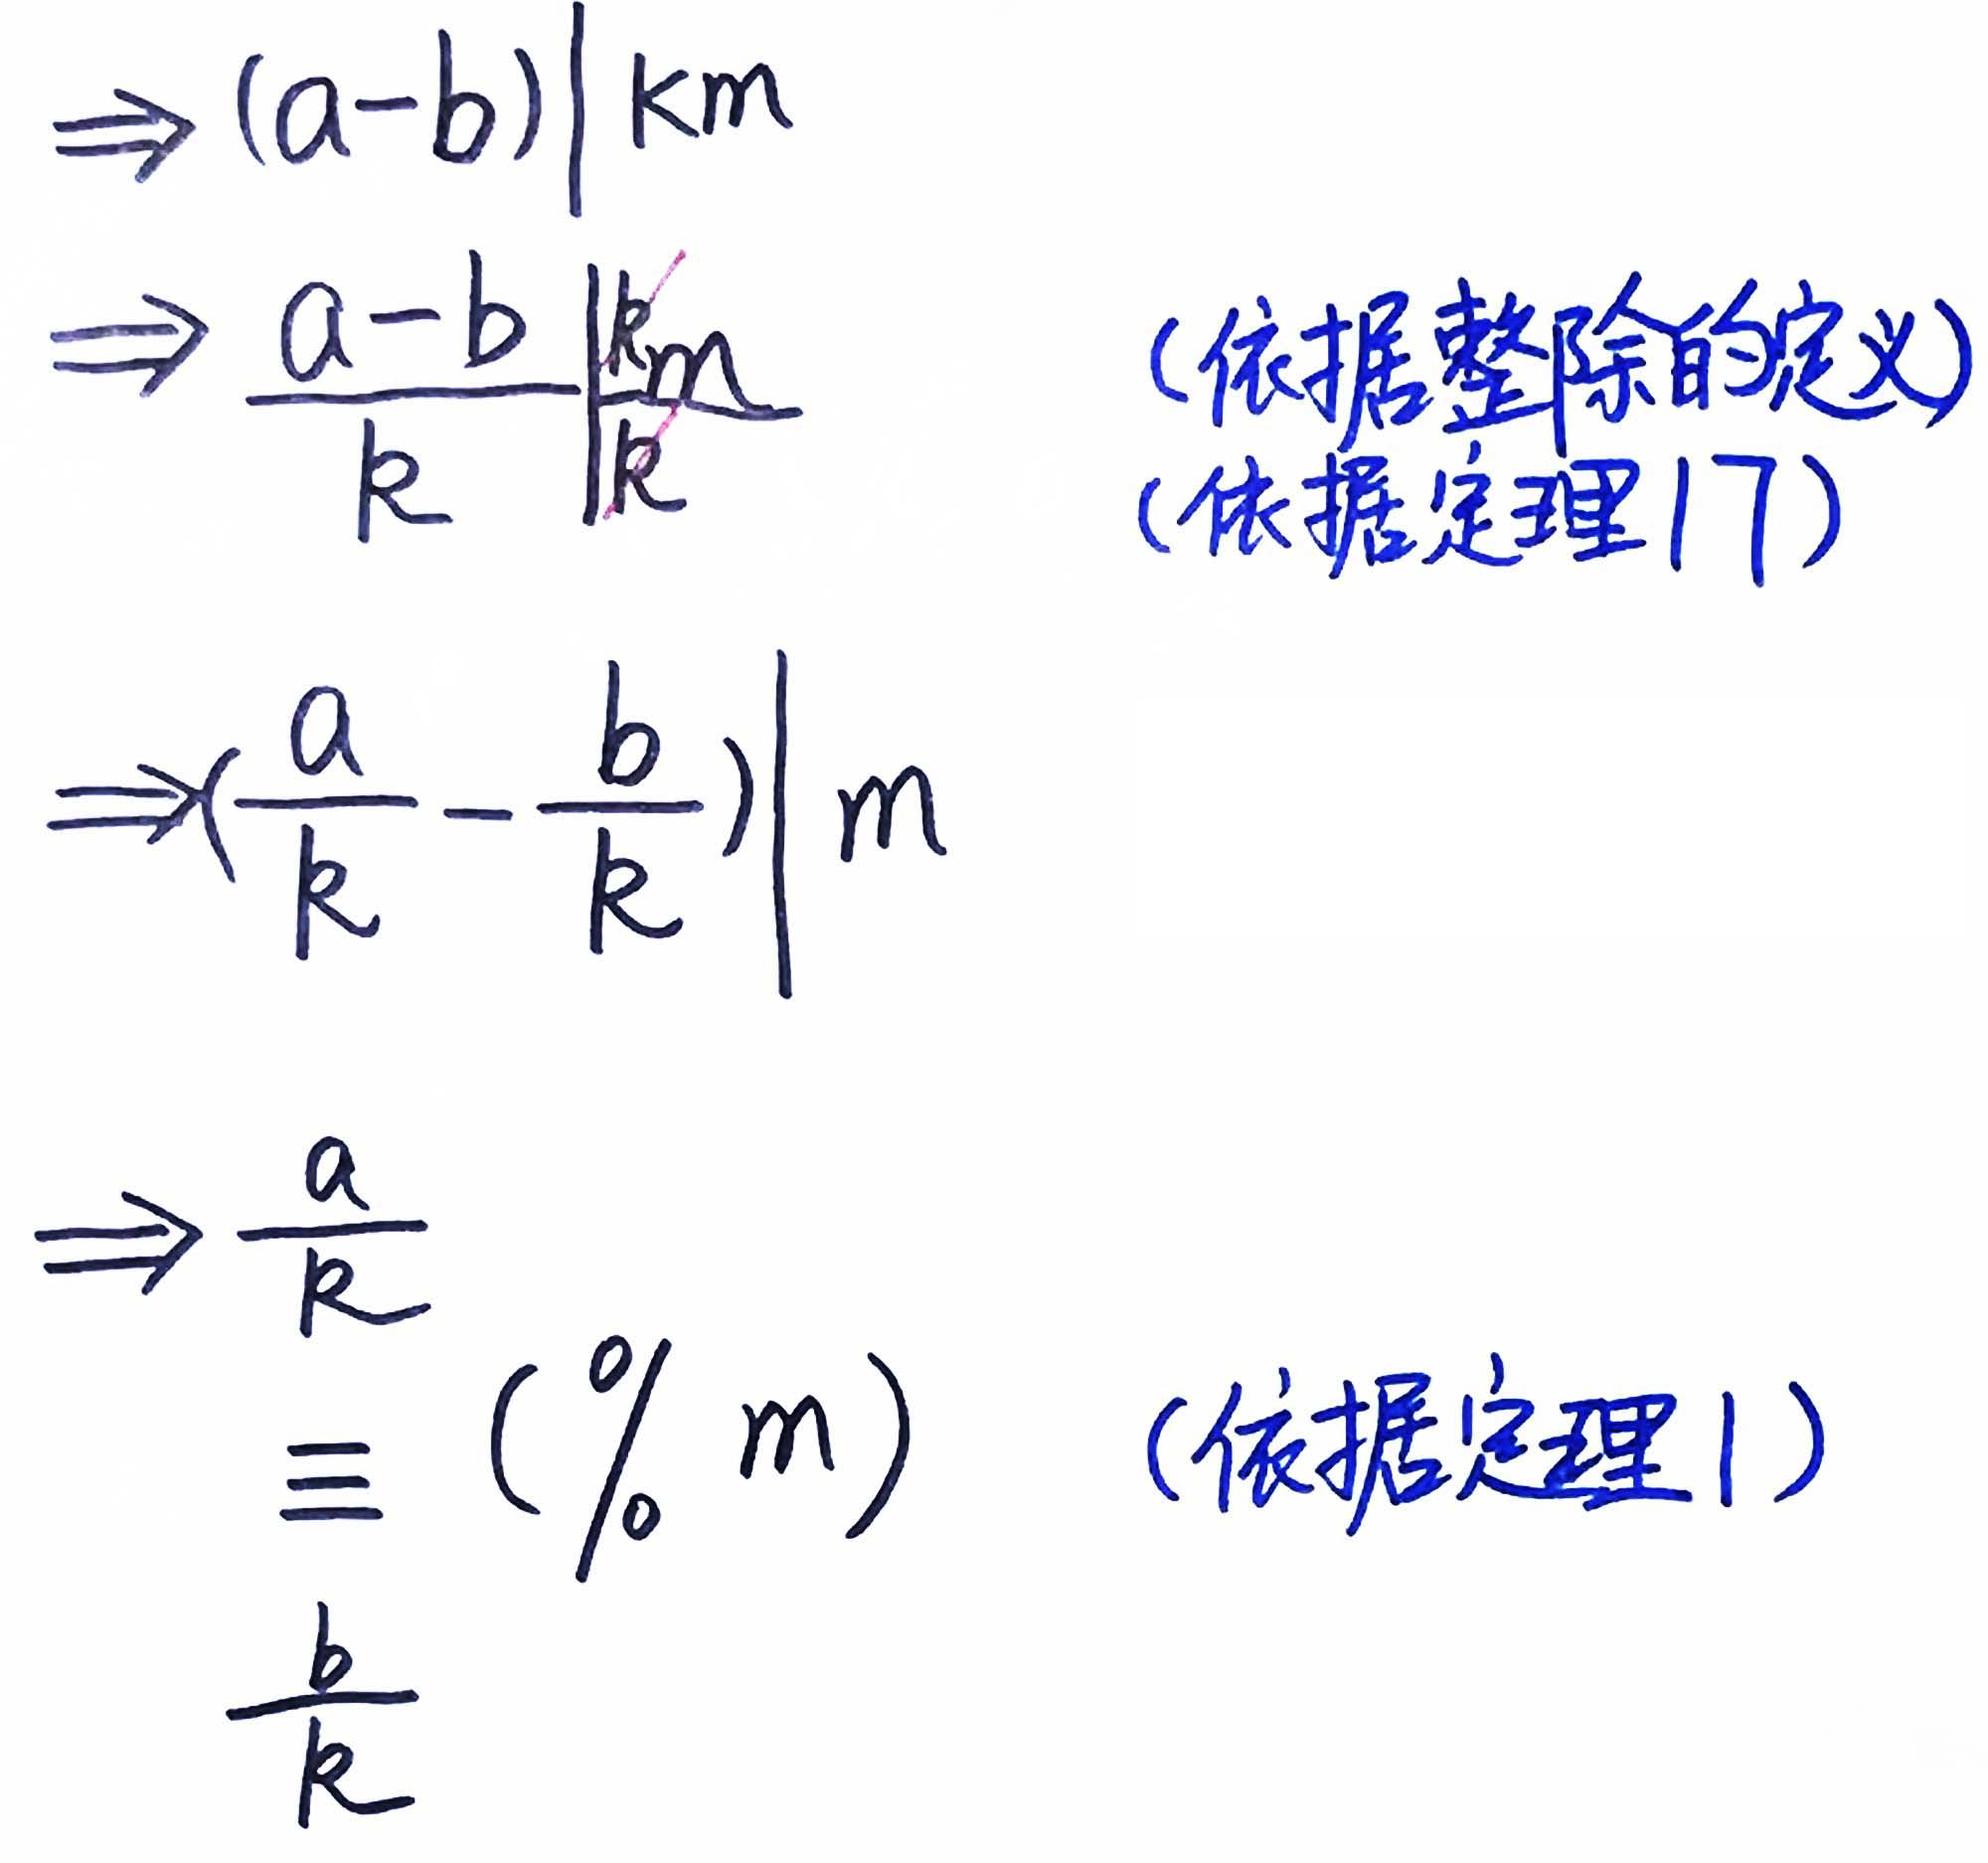 ⇒ (a-b) | km
⇒ a-b | km
(依据整除的定义)
k | k
(依据定理17)
⇒ ( a/k - b/k ) | m
⇒ a/k
≡ (% m)
(依据定理1)
b/k